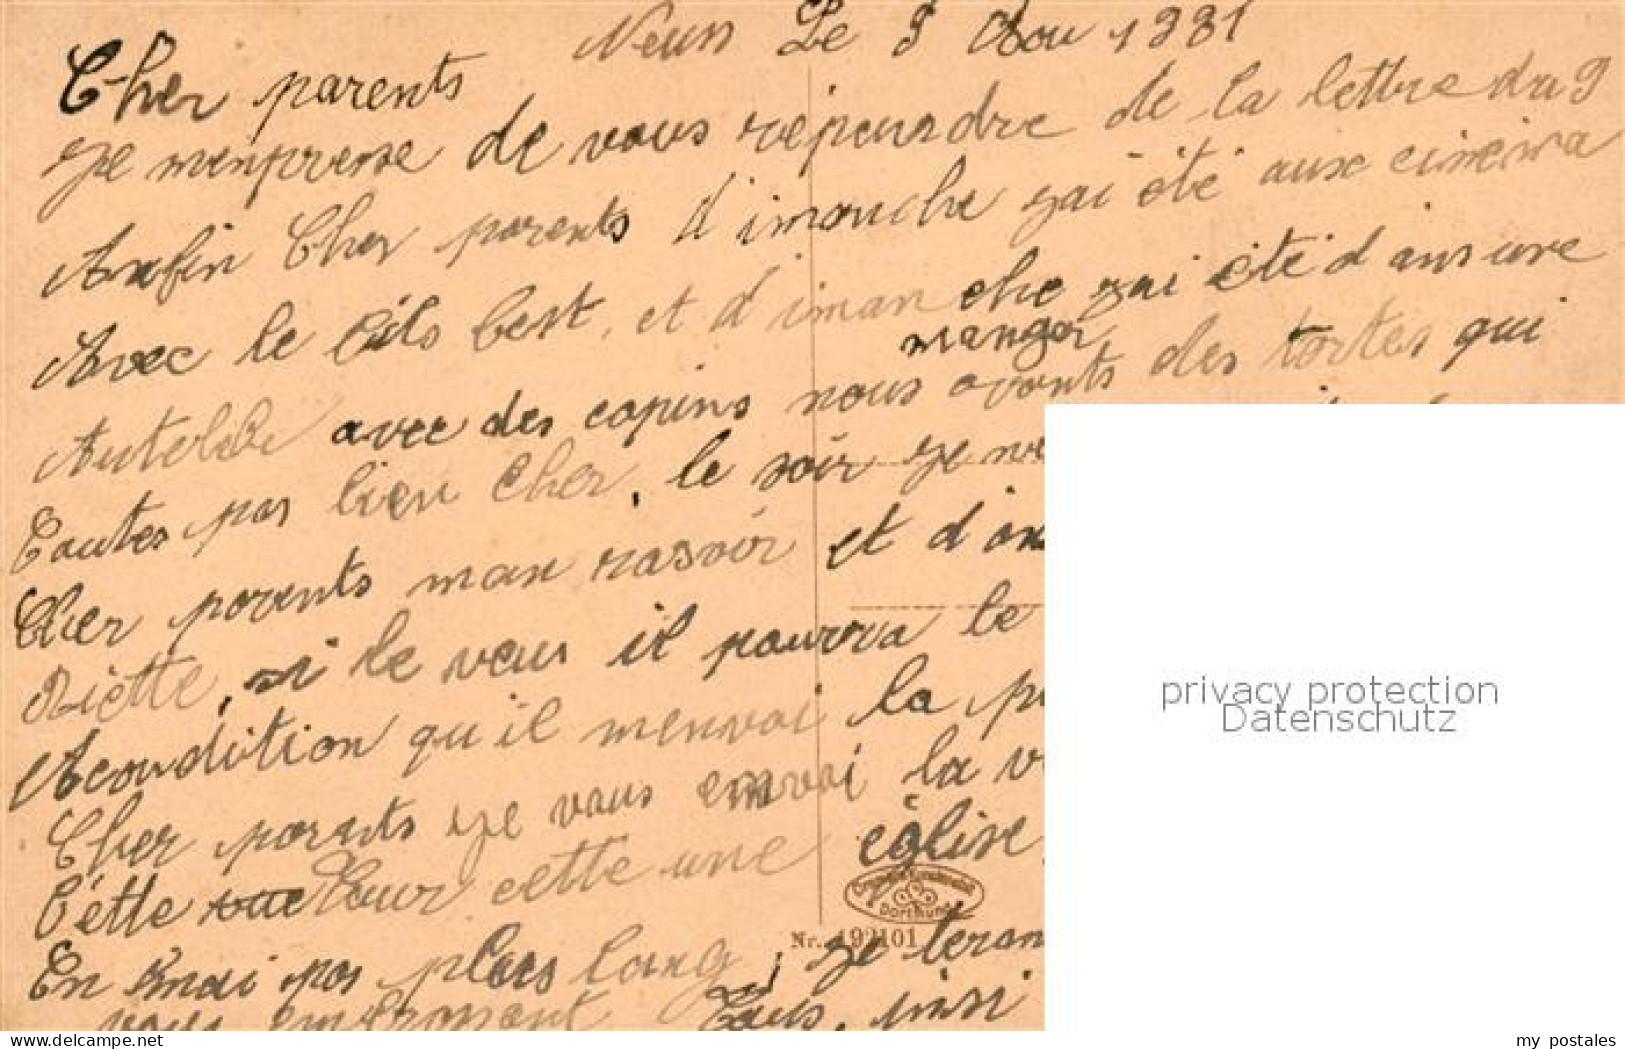 Neuss Le 3 Aou 1931
Cher parents
Je menprense de vous repeundre de la lettre du 9
Anfin Cher parents d'imanche gai été aux cinéma
Avec le fils best, et d'iman che gai été d ans une
manger
Autobbe avec des copins nous avonts des tortes qui
Coutes pas bien cher, le soir ge
Cher parents man rasoir et d'on
si le veus il pourra le
Acondition qu'il menvoi la
Cher parents ge vous envoi la v
Cette vue cette une église
Dortmund
Nr. 192101
En pas plus long, ge
vous embrassant ainsi
privacy protection
Datenschutz
www.delcampe.net
my_postales